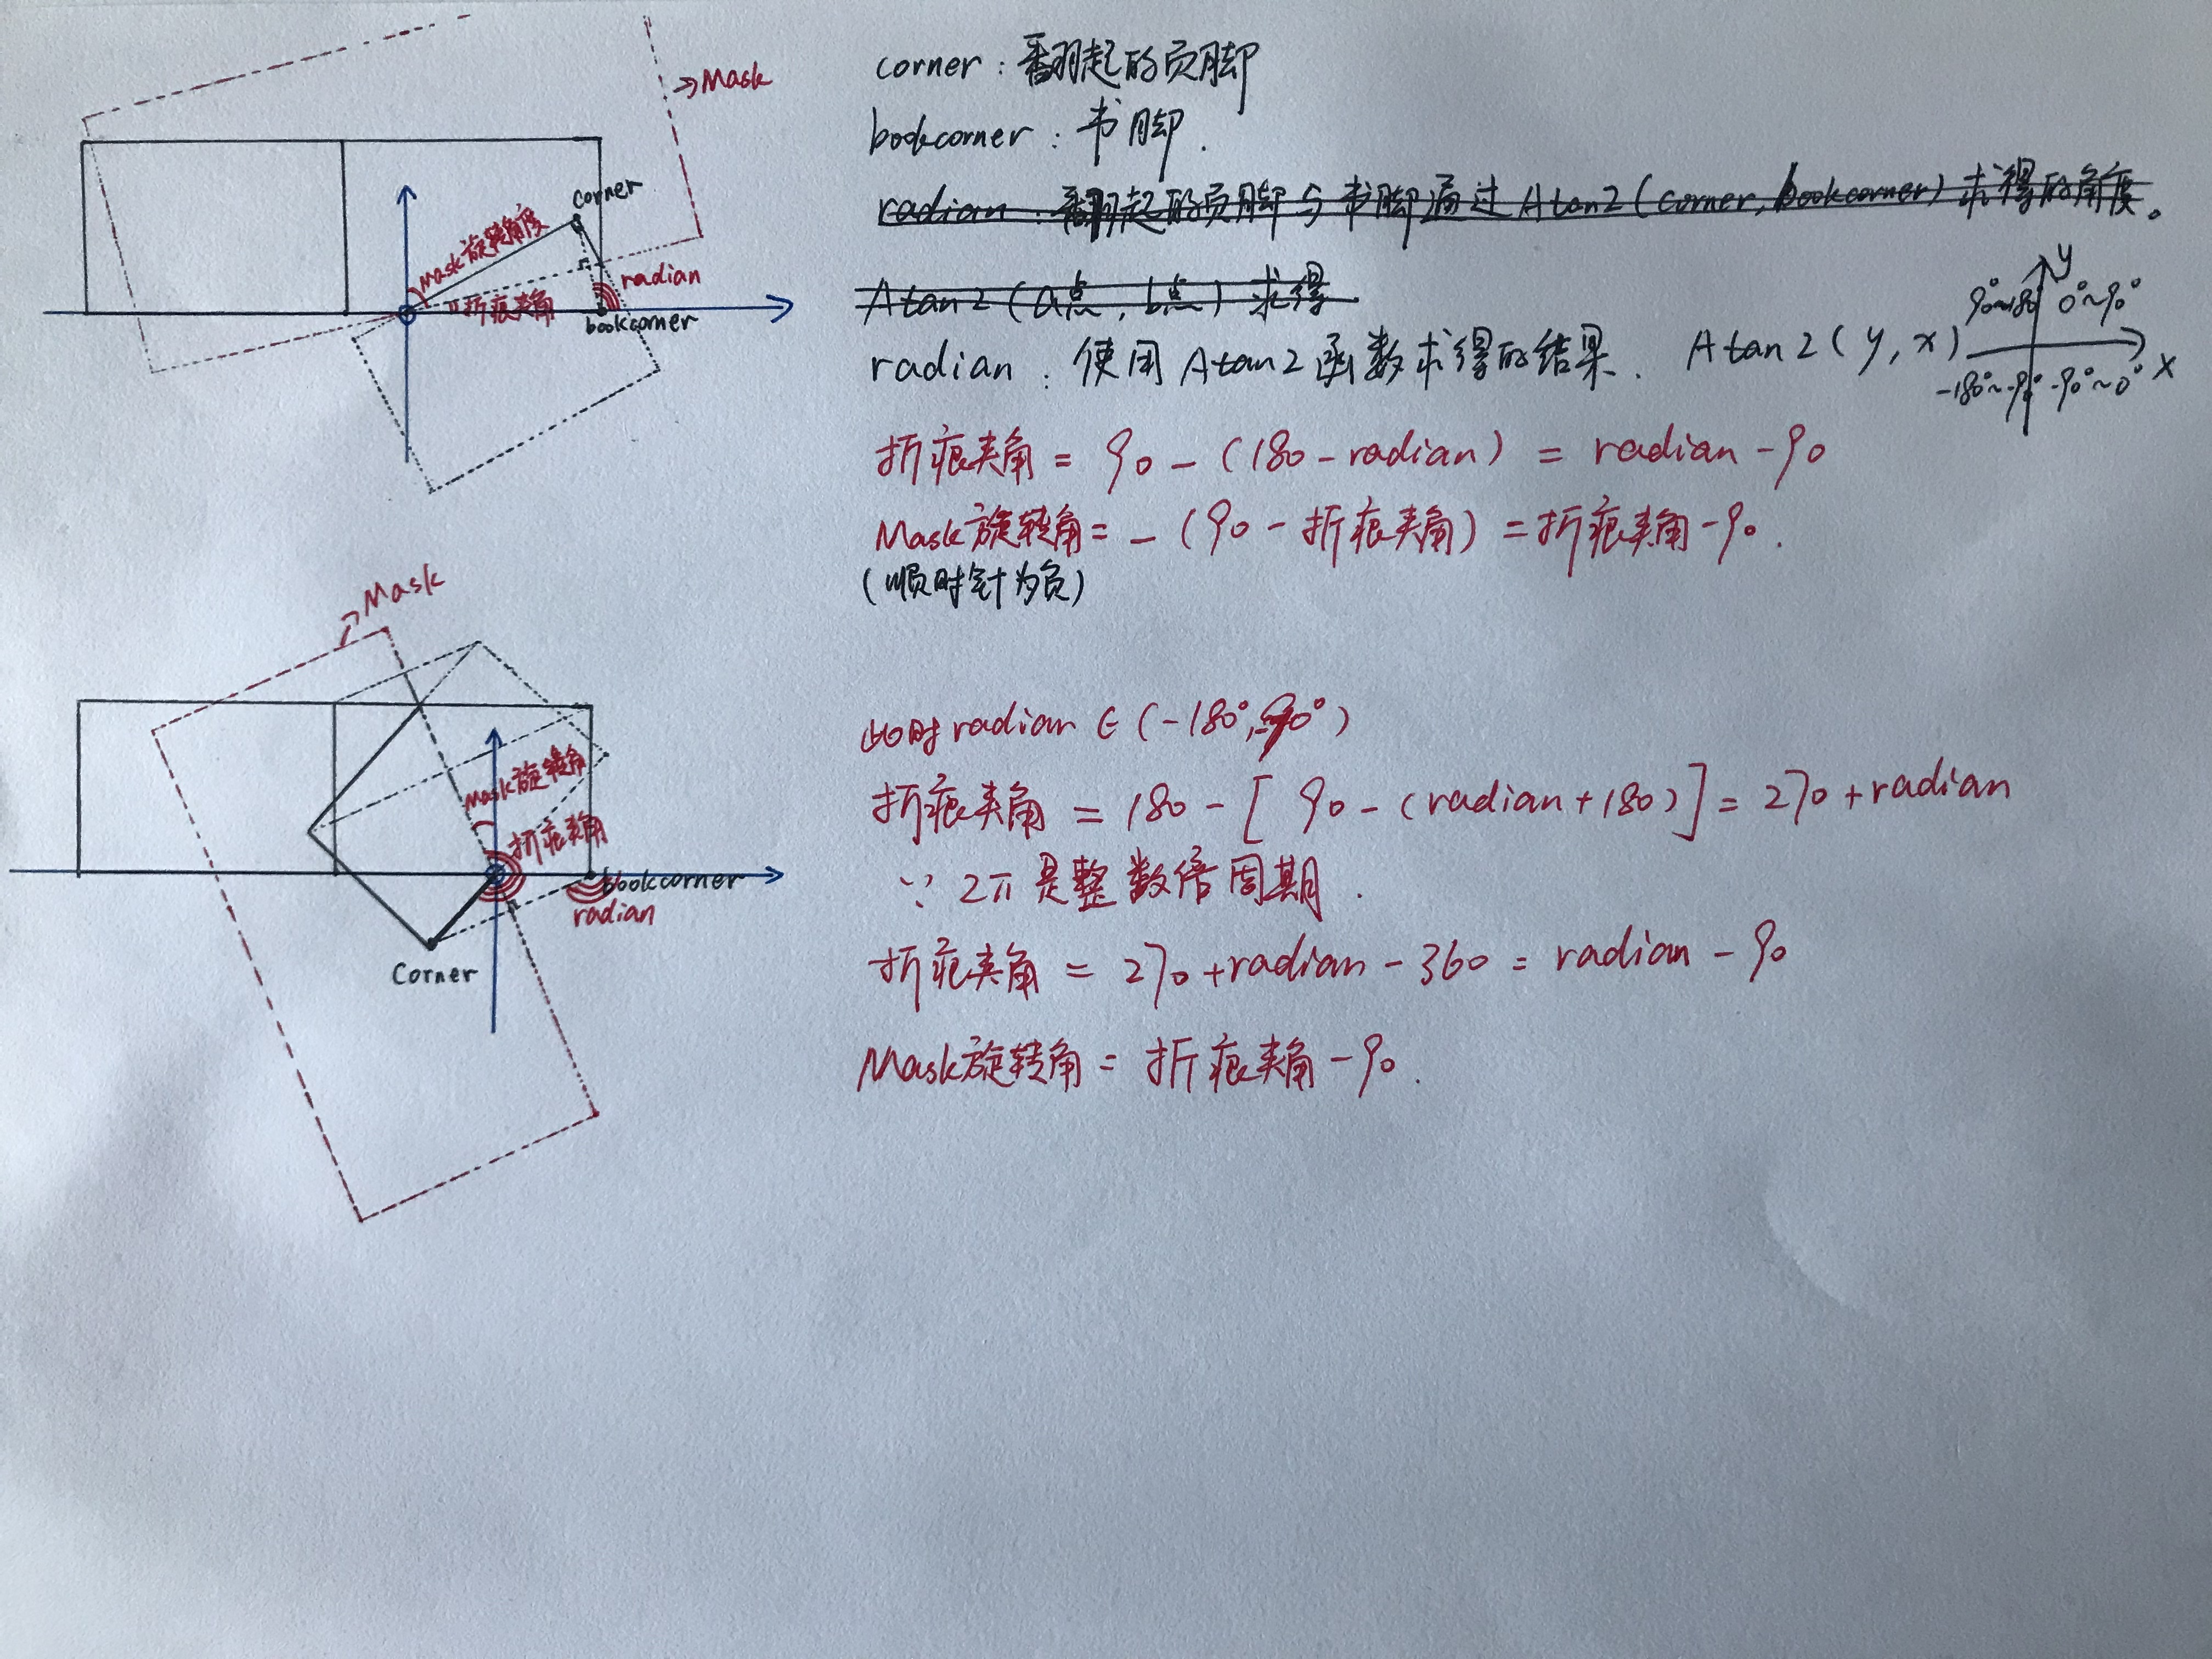 →Mask
corner
Mask旋转角度
折痕夹角
radian
bookcorner
corner：翻起的页脚
bookcorner：书脚.
radian：翻起的页脚与书脚通过Atan2(corner, bookcorner)求得的角度。
Atan2(a点, b点)求得
radian：使用Atan2函数求得的结果. Atan2(y, x)
y
90°~180° 0°~90°
-180°~-90° -90°~0° x
折痕夹角 = 90 - (180 - radian) = radian - 90
Mask旋转角 = - (90 - 折痕夹角) = 折痕夹角 - 90.
(顺时针为负)
→Mask
Mask旋转角
折痕夹角
bookcorner
radian
Corner
此时radian ∈ (-180°, -90°)
折痕夹角 = 180 - [90 - (radian + 180)] = 270 + radian
∵ 2π是整数倍周期.
折痕夹角 = 270 + radian - 360 = radian - 90
Mask旋转角 = 折痕夹角 - 90.